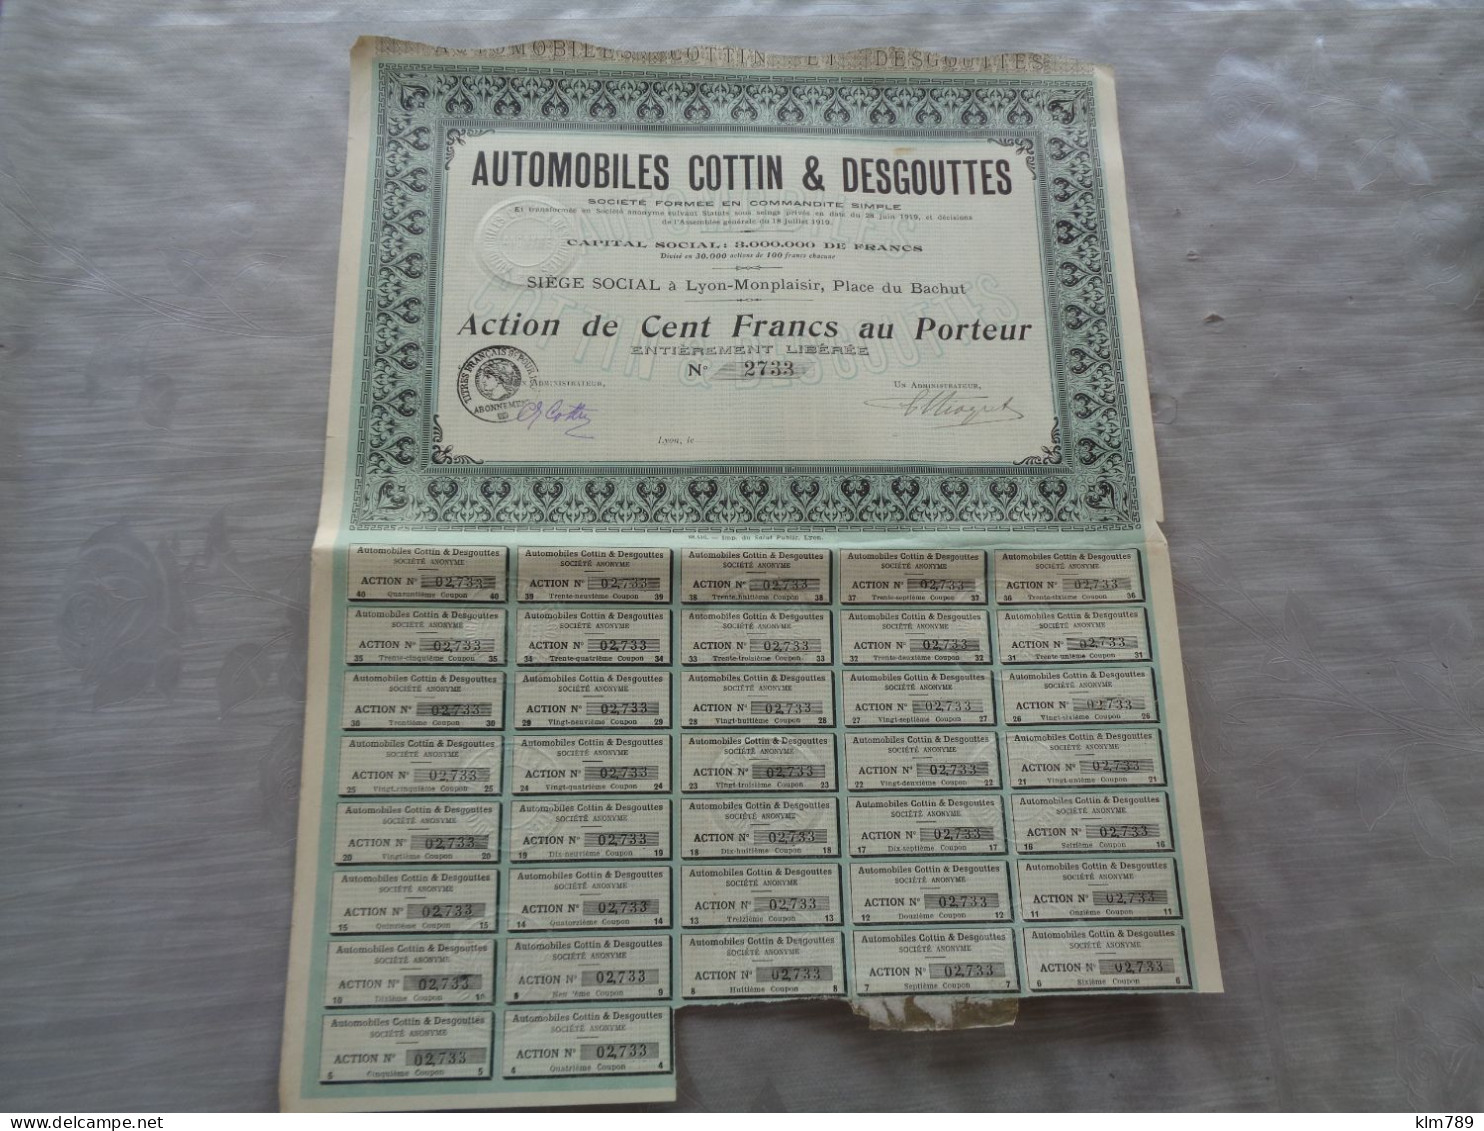 AUTOMOBILES COTTIN ET DESGOUTTES
AUTOMOBILES COTTIN & DESGOUTTES
SOCIÉTÉ FORMÉE EN COMMANDITE SIMPLE
Et transformée en Société anonyme suivant Statuts sous seings privés en date du 28 juin 1919, et décisions
de l'Assemblée générale du 18 juillet 1919.
CAPITAL SOCIAL: 3.000.000 DE FRANCS
Divisé en 30.000 actions de 100 francs chacune
SIÈGE SOCIAL à Lyon-Monplaisir, Place du Bachut
Action de Cent Francs au Porteur
ENTIÈREMENT LIBÉRÉE
N° 2733
ADMINISTRATEUR, UN ADMINISTRATEUR,
TITRES FRANÇAIS
ABONNEMENT
Lyon, le
Imp. du Salut Public, Lyon.
Automobiles Cottin & Desgouttes Automobiles Cottin & Desgouttes Automobiles Cottin & Desgouttes Automobiles Cottin & Desgouttes Automobiles Cottin & Desgouttes
SOCIÉTÉ ANONYME SOCIÉTÉ ANONYME SOCIÉTÉ ANONYME SOCIÉTÉ ANONYME SOCIÉTÉ ANONYME
ACTION N° 02,733 ACTION N° 02,733 ACTION N° 02,733 ACTION N° 02,733 ACTION N° 02,733
40 Quarantième Coupon 40 39 Trente-neuvième Coupon 39 38 Trente-huitième Coupon 38 37 Trente-septième Coupon 37 36 Trente-sixième Coupon 36
Automobiles Cottin & Desgouttes Automobiles Cottin & Desgouttes Automobiles Cottin & Desgouttes Automobiles Cottin & Desgouttes Automobiles Cottin & Desgouttes
SOCIÉTÉ ANONYME SOCIÉTÉ ANONYME SOCIÉTÉ ANONYME SOCIÉTÉ ANONYME SOCIÉTÉ ANONYME
ACTION N° 02,733 ACTION N° 02,733 ACTION N° 02,733 ACTION N° 02,733 ACTION N° 02,733
35 Trente-cinquième Coupon 35 34 Trente-quatrième Coupon 34 33 Trente-troisième Coupon 33 32 Trente-deuxième Coupon 32 31 Trente-unième Coupon 31
Automobiles Cottin & Desgouttes Automobiles Cottin & Desgouttes Automobiles Cottin & Desgouttes Automobiles Cottin & Desgouttes Automobiles Cottin & Desgouttes
SOCIÉTÉ ANONYME SOCIÉTÉ ANONYME SOCIÉTÉ ANONYME SOCIÉTÉ ANONYME SOCIÉTÉ ANONYME
ACTION N° 02,733 ACTION N° 02,733 ACTION N° 02,733 ACTION N° 02,733 ACTION N° 02,733
30 Trentième Coupon 30 29 Vingt-neuvième Coupon 29 28 Vingt-huitième Coupon 28 27 Vingt-septième Coupon 27 26 Vingt-sixième Coupon 26
Automobiles Cottin & Desgouttes Automobiles Cottin & Desgouttes Automobiles Cottin & Desgouttes Automobiles Cottin & Desgouttes Automobiles Cottin & Desgouttes
SOCIÉTÉ ANONYME SOCIÉTÉ ANONYME SOCIÉTÉ ANONYME SOCIÉTÉ ANONYME SOCIÉTÉ ANONYME
ACTION N° 02,733 ACTION N° 02,733 ACTION N° 02,733 ACTION N° 02,733 ACTION N° 02,733
25 Vingt-cinquième Coupon 25 24 Vingt-quatrième Coupon 24 23 Vingt-troisième Coupon 23 22 Vingt-deuxième Coupon 22 21 Vingt-unième Coupon 21
Automobiles Cottin & Desgouttes Automobiles Cottin & Desgouttes Automobiles Cottin & Desgouttes Automobiles Cottin & Desgouttes Automobiles Cottin & Desgouttes
SOCIÉTÉ ANONYME SOCIÉTÉ ANONYME SOCIÉTÉ ANONYME SOCIÉTÉ ANONYME SOCIÉTÉ ANONYME
ACTION N° 02,733 ACTION N° 02,733 ACTION N° 02,733 ACTION N° 02,733 ACTION N° 02,733
20 Vingtième Coupon 20 19 Dix-neuvième Coupon 19 18 Dix-huitième Coupon 18 17 Dix-septième Coupon 17 16 Seizième Coupon 16
Automobiles Cottin & Desgouttes Automobiles Cottin & Desgouttes Automobiles Cottin & Desgouttes Automobiles Cottin & Desgouttes Automobiles Cottin & Desgouttes
SOCIÉTÉ ANONYME SOCIÉTÉ ANONYME SOCIÉTÉ ANONYME SOCIÉTÉ ANONYME SOCIÉTÉ ANONYME
ACTION N° 02,733 ACTION N° 02,733 ACTION N° 02,733 ACTION N° 02,733 ACTION N° 02,733
15 Quinzième Coupon 15 14 Quatorzième Coupon 14 13 Treizième Coupon 13 12 Douzième Coupon 12 11 Onzième Coupon 11
Automobiles Cottin & Desgouttes Automobiles Cottin & Desgouttes Automobiles Cottin & Desgouttes Automobiles Cottin & Desgouttes Automobiles Cottin & Desgouttes
SOCIÉTÉ ANONYME SOCIÉTÉ ANONYME SOCIÉTÉ ANONYME SOCIÉTÉ ANONYME SOCIÉTÉ ANONYME
ACTION N° 02,733 ACTION N° 02,733 ACTION N° 02,733 ACTION N° 02,733 ACTION N° 02,733
10 Dixième Coupon 10 9 Neuvième Coupon 9 8 Huitième Coupon 8 7 Septième Coupon 7 6 Sixième Coupon 6
Automobiles Cottin & Desgouttes Automobiles Cottin & Desgouttes
SOCIÉTÉ ANONYME SOCIÉTÉ ANONYME
ACTION N° 02,733 ACTION N° 02,733
5 Cinquième Coupon 5 4 Quatrième Coupon 4
delcampe.net
klm789